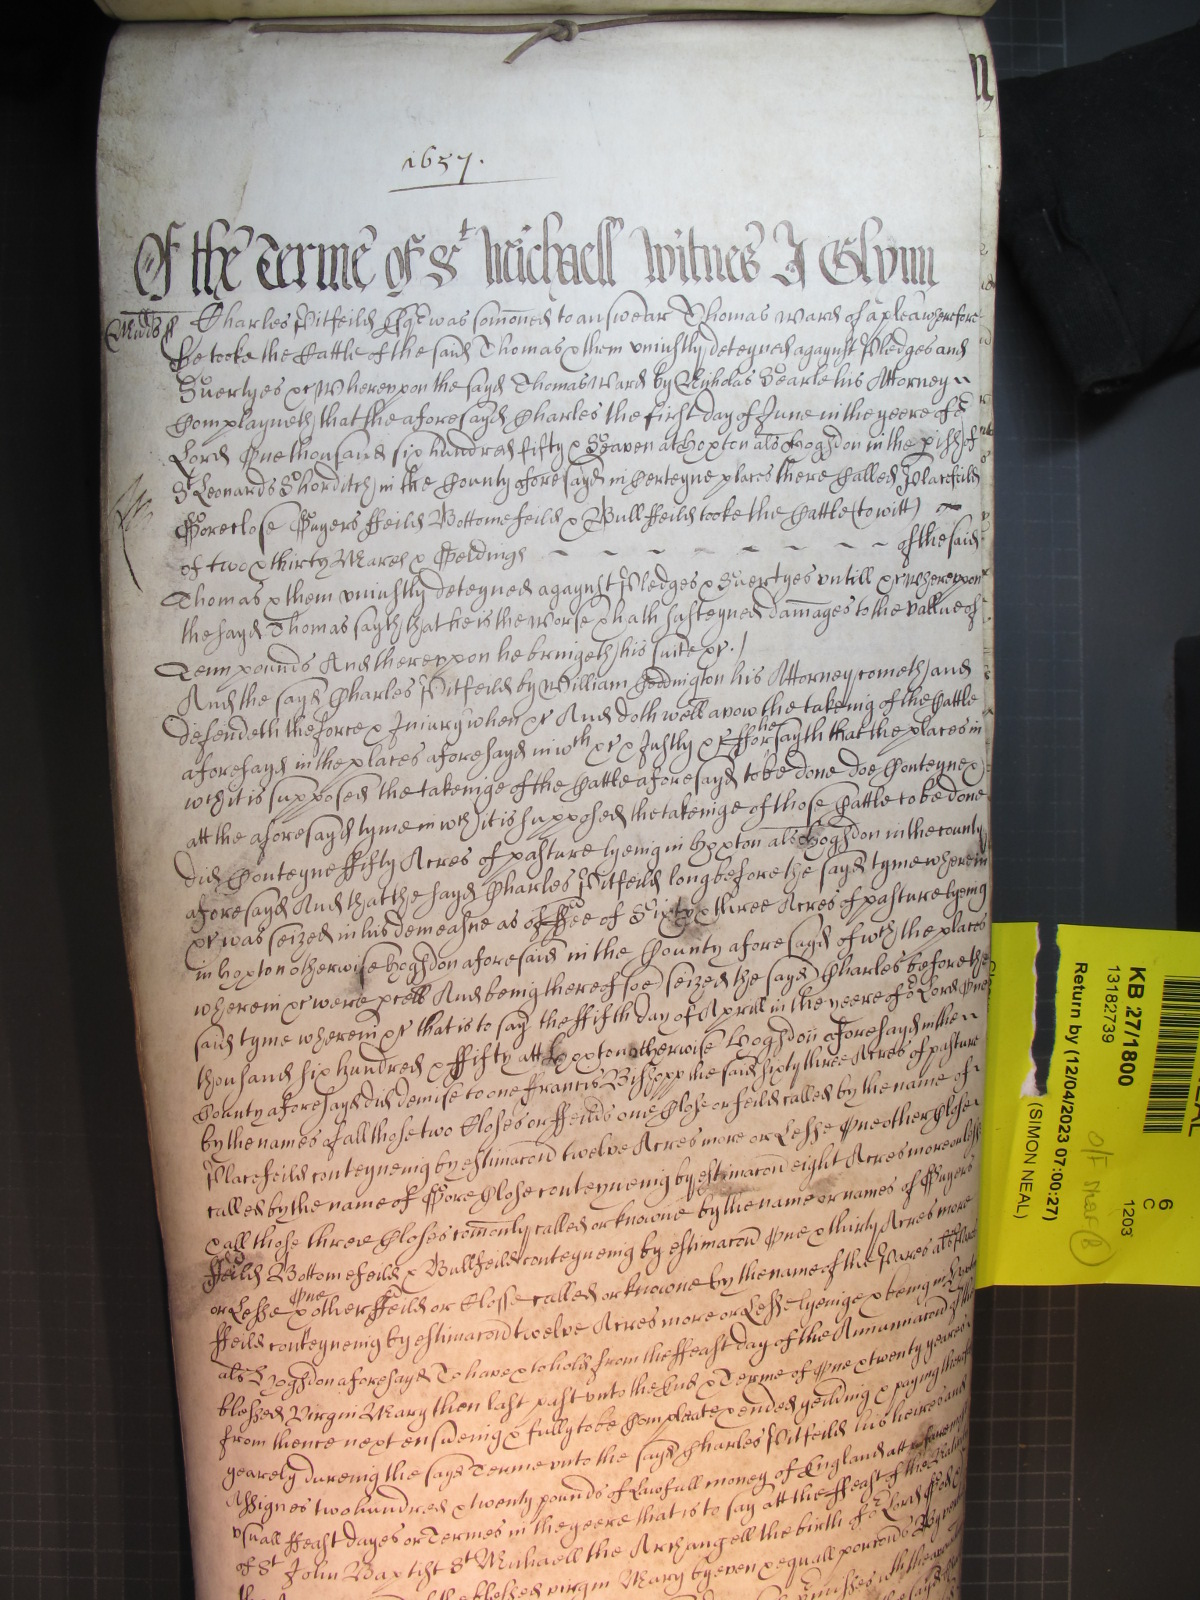 1657.
Of the Terme of St Michaell Witnes J Glynn
Midds ss Charles Pitfeild Esqr was somoned to answear Thomas Ward of a plea wherefore
he tooke the Cattle of the said Thomas & them uniustly deteyned agaynst Pledges and
Suertyes &c Whereupon the sayd Thomas Ward by Nicholas Searle his Attorney
Complayneth that the aforesayd Charles the first day of June in the yeere of or
Lord One thousand six hundred fifty & Seaven at Hoxton als Hogsdon in the pish of
St Leonards Shorditch in the County aforesayd in Certeyne places there Called Placefeild
Foreclose Ffeild Bottomefeild & Bullffeild tooke the Cattle (to witt)
of two & thirty Mares & Geldings of the said
Thomas & them uniustly deteyned agaynst Pledges & Suertyes untill &c whereupon
the sayd Thomas sayth that he is the worse & hath susteyned damages to the vallue of
Tenn pounds And thereupon he bringeth his suite &c.
And the sayd Charles Pitfeild by William Geddington his Attorney cometh and
defendeth the force & Iniury when &c And doth well avow the takeing of the Cattle
aforesayd in the places aforesayd in wch &c & Justly &c Ffor he sayth that the places in
wch it is supposed the takeinge of the Cattle aforesayd to be done doe Conteyne &
att the aforesayd tyme in wch it is supposed the takeinge of those Cattle to be done
did Conteyne ffifty Acres of pasture lyeing in Hoxton als Hogsdon in the county
aforesayd And that the sayd Charles Pitfeild long before the sayd tyme wherein
&c was seized in his demeasne as of Ffee of Sixty & three Acres of pasture lyeing
in Hoxton otherwise Hogsdon aforesaid in the County aforesayd of wch the places
wherein &c were pcell And being thereof soe seized the sayd Charles before the
said tyme wherein &c that is to say the ffifth day of Aprill in the yeere of or Lord One
thousand six hundred & ffifty att Hoxton otherwise Hogsdon aforesayd in the
County aforesayd did demise to one Francis Bishopp the said sixty three Acres of pasture
by the names of all those two Closes or ffeilds one Close or feild called by the name of
Placefeild conteyneing by estimacon twelve Acres more or Lesse One other Close
called by the name of Fore Close conteyneing by estimacon eight Acres more or lesse
& all those three Closes comonly called or knowne by the name or names of
Ffeild Bottomefeild & Bullfeild conteyneing by estimacon One & thirty Acres more
or Lesse & One other Ffeild or Closse called or knowne by the name of the als
ffeild conteyneing by estimacon twelve Acres more or Lesse lyeinge & being in
als Hogsdon aforesayd To have & to hold from the ffeast day of the Annunnacon of the
blessed Virgin Mary then last past unto the End & Terme of One & twenty yeares
from thence next ensueing & fully to be Compleate & ended yeilding & paying
yearely dureing the sayd Terme unto the sayd Charles Pitfeild his heires and
Assignes two hundred & twenty pounds of Lawfull money of England att
usuall ffeast dayes or Termes in the yeere that is to say att the ffeast of the
of St John Baptist St Michaell the Archangell the birth of or Lord
the blessed virgin Mary by even & equall porcons
KB 27/1800
13182739
Return by (12/04/2023 07:00:27)
(SIMON NEAL)
6
C
1203